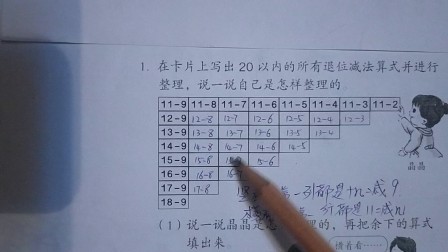 1. 在卡片上写出 20 以内的所有退位减法算式并进行
整理，说一说自己是怎样整理的。
11-9 11-8 11-7 11-6 11-5 11-4 11-3 11-2
12-9 12-8 12-7 12-6 12-5 12-4 12-3
13-9 13-8 13-7 13-6 13-5 13-4
14-9 14-8 14-7 14-6 14-5
15-9 15-8 15-6
16-9 16-8
17-9 17-8
18-9
第一列都是十几减9
行都是11减几
晶晶
(1) 说一说晶晶是怎 理的，再把余下的算式
填出来。
横着看